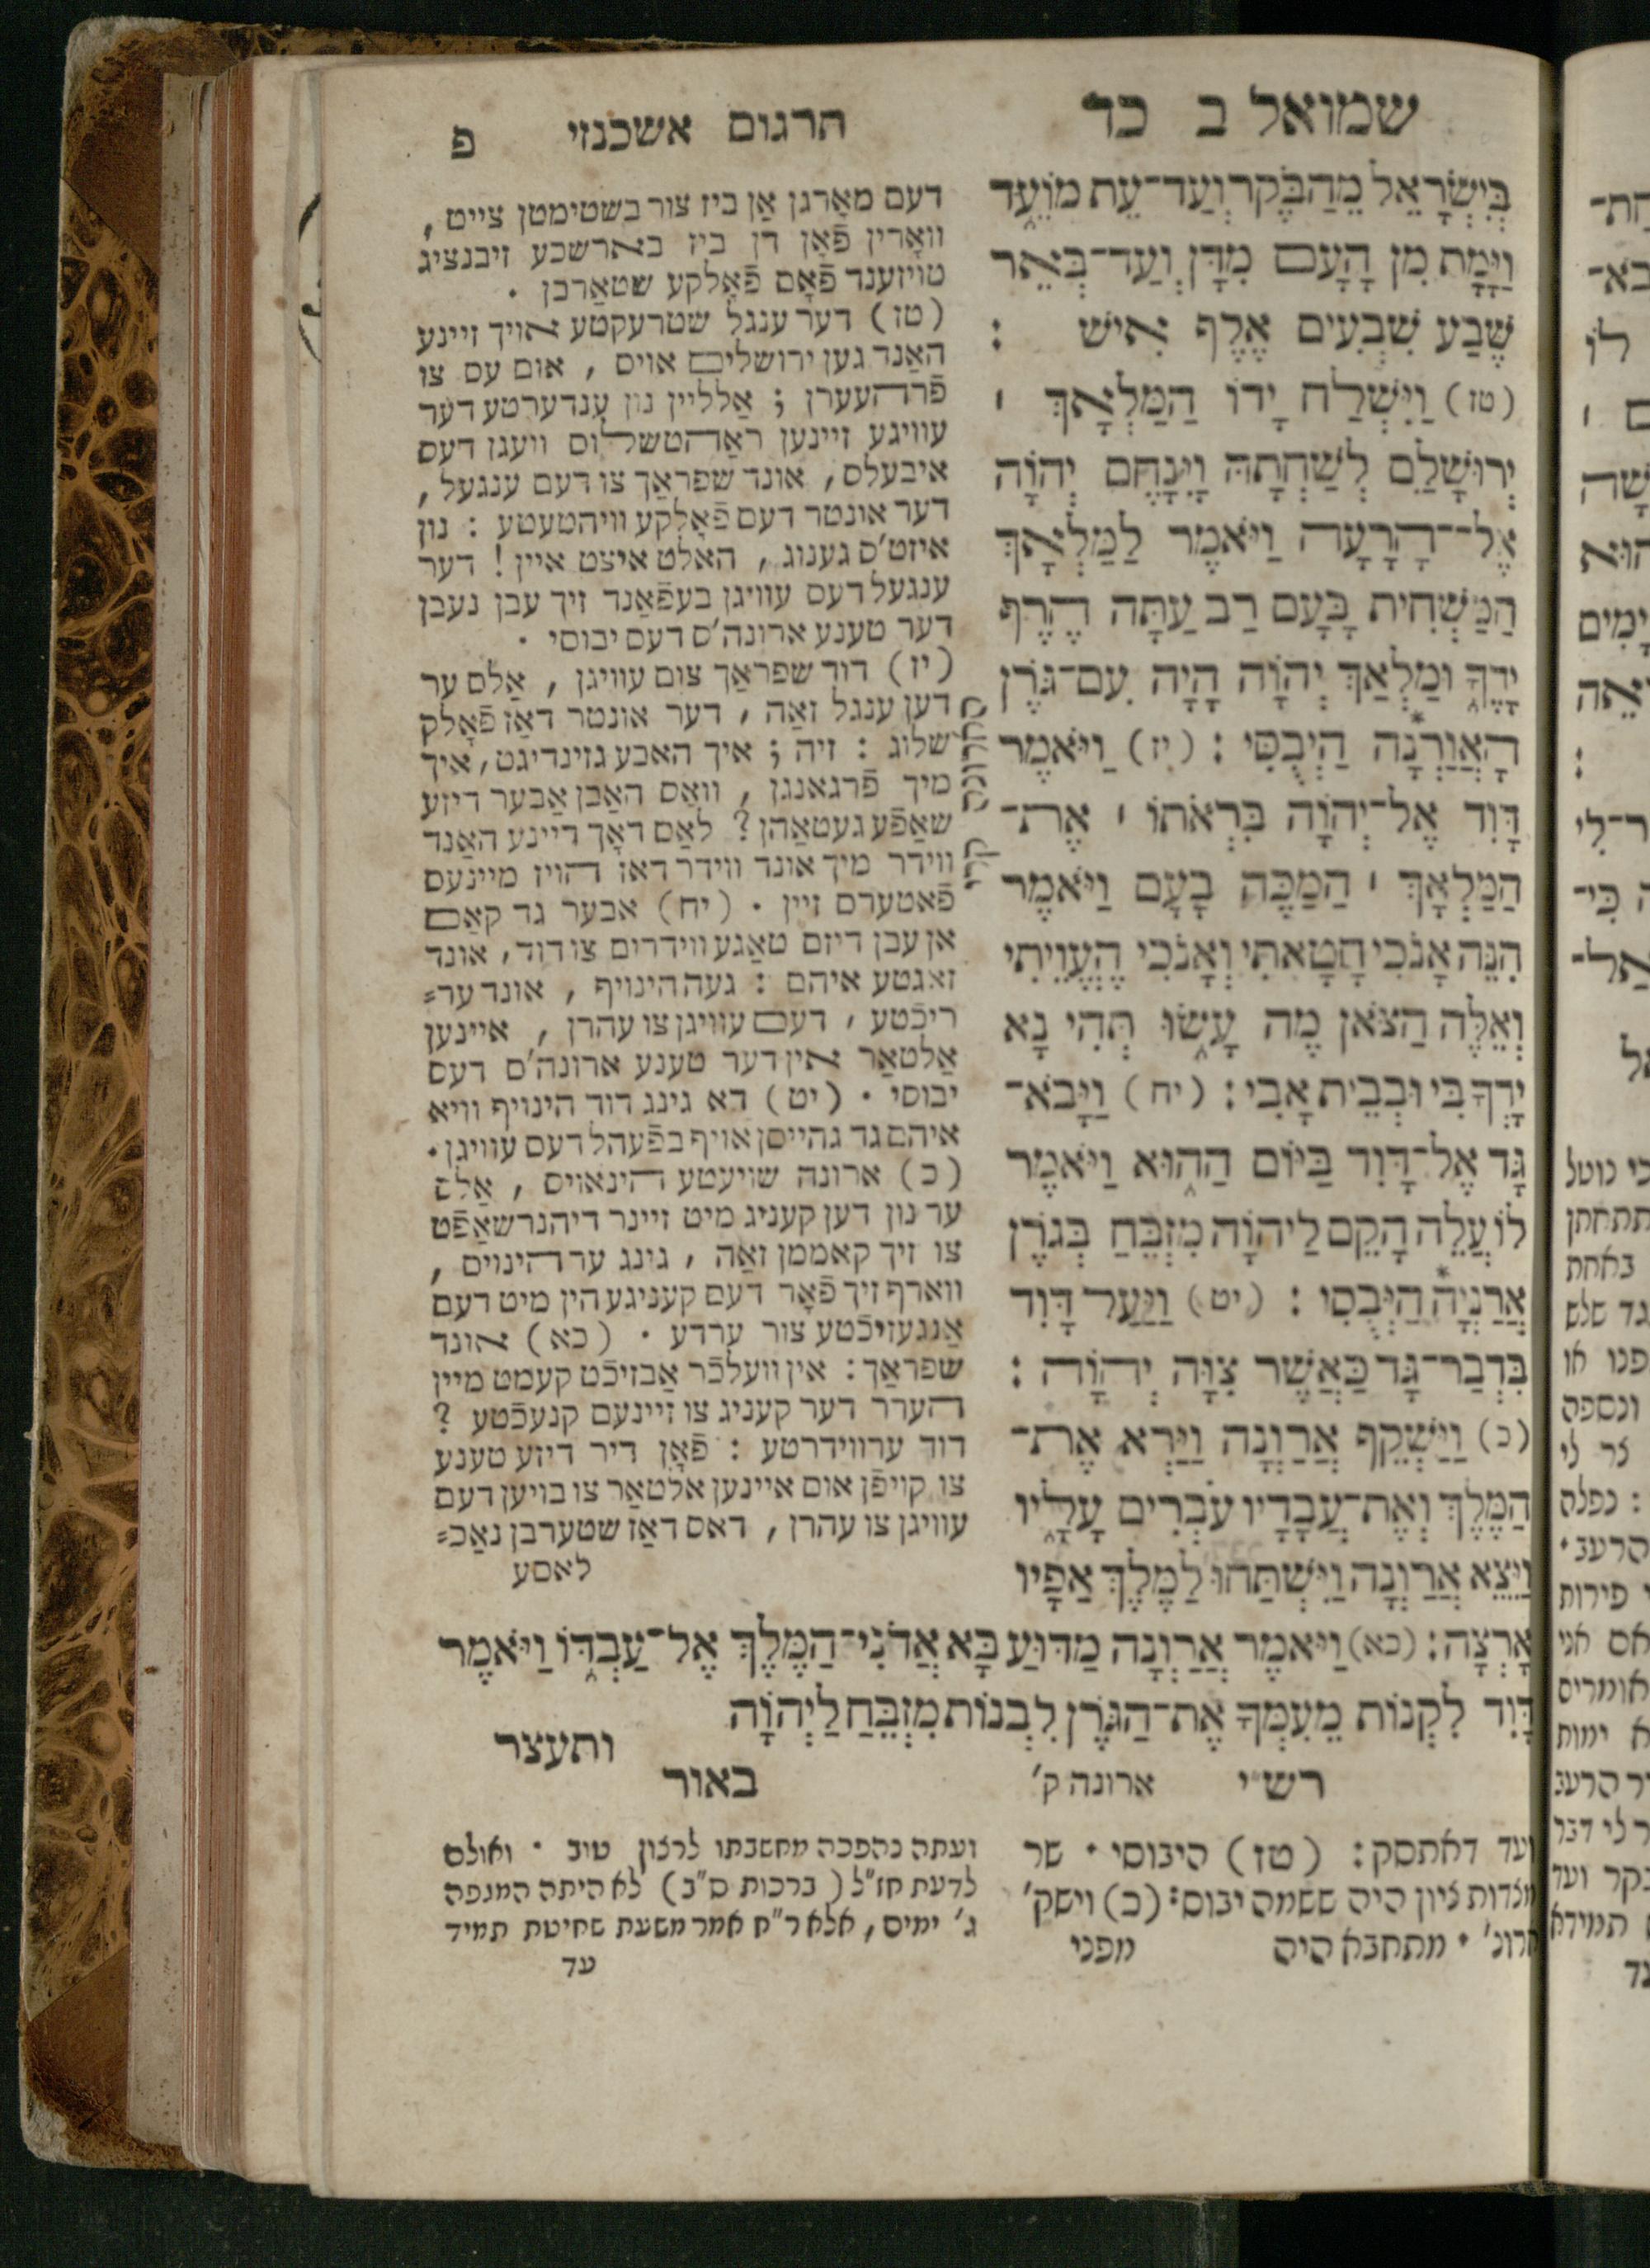 שמואל ב כד
תרגום אשכנזי פ
בְּיִשְׂרָאֵל מֵהַבֹּקֶר וְעַד־עֵת מוֹעֵד
וַיָּמָת מִן הָעָם מִדָּן וְעַד־בְּאֵר
שֶׁבַע שִׁבְעִים אֶלֶף אִישׁ :
(טז) וַיִּשְׁלַח יָדוֹ הַמַּלְאָךְ ׀
יְרוּשָׁלַ͏ִם לְשַׁחְתָהּ וַיִּנָּחֶם יְהוָֹה
אֶל־הָרָעָה וַיֹּאמֶר לַמַּלְאָךְ
הַמַּשְׁחִית בָּעָם רַב עַתָּה הֶרֶף
יָדֶךָ וּמַלְאַךְ יְהוָֹה הָיָה עִם־גֹּרֶן
הָאֲוַרְנָה הַיְבֻסִי : (יז) וַיֹּאמֶר
דָּוִד אֶל־יְהוָֹה בִּרְאֹתוֹ ׀ אֶת־
הַמַּלְאָךְ ׀ הַמַּכֶּה בָעָם וַיֹּאמֶר
הִנֵּה אָנֹכִי חָטָאתִי וְאָנֹכִי הֶעֱוֵיתִי
וְאֵלֶּה הַצֹּאן מֶה עָשׂוּ תְּהִי נָא
יָדְךָ בִּי וּבְבֵית אָבִי : (יח) וַיָּבֹא־
גָד אֶל־דָּוִד בַּיּוֹם הַהוּא וַיֹּאמֶר
לוֹ עֲלֵה הָקֵם לַיהוָֹה מִזְבֵּחַ בְּגֹרֶן
אֲרַנְיָה הַיְבֻסִי : (יט) וַיַּעַל דָּוִד
בִּדְבַר־גָּד כַּאֲשֶׁר צִוָּה יְהוָֹה :
(כ) וַיַּשְׁקֵף אֲרַוְנָה וַיַּרְא אֶת־
הַמֶּלֶךְ וְאֶת־עֲבָדָיו עֹבְרִים עָלָיו
וַיֵּצֵא אֲרַוְנָה וַיִּשְׁתַּחוּ לַמֶּלֶךְ אַפָּיו
אָרְצָה : (כא) וַיֹּאמֶר אֲרַוְנָה מַדּוּעַ בָּא אֲדֹנִי־הַמֶּלֶךְ אֶל־עַבְדּוֹ וַיֹּאמֶר
דָּוִד לִקְנוֹת מֵעִמְּךָ אֶת־הַגֹּרֶן לִבְנוֹת מִזְבֵּחַ לַיְהוָֹה
ותעצר
קרי
דעם מאָרגן אַן ביז צור בשטימטן צייט ,
וואָרין פֿאָן דן ביז בארשבע זיבנציג
טויזענד פֿאָם פֿאָלקע שטאַרבן .
(טז) דער ענגל שטרעקטע אויך זיינע
האַנד גען ירושלים אויס , אום עס צו
פֿרהעערן ; אַלליין נון ענדערטע דער
עוויגע זיינען ראַהטשלוס וועגן דעס
איבעלס , אונד שפראַך צו דעם ענגעל ,
דער אונטר דעם פֿאָלקע וויהטעטע : נון
איזט'ס גענוג , האלט איצט איין ! דער
ענגעל דעס עוויגן בעפֿאַנד זיך עבן נעבן
דער טענע ארונה'ס דעס יבוסי .
(יז) דוד שפראַך צום עוויגן , אַלס ער
דען ענגל זאַה , דער אונטר דאַז פֿאָלק
שלוג : זיה ; איך האבע גזינדיגט , איך
מיך פֿרגאנגן , וואָס האַבן אַבער דיזע
שאַפֿע געטאַהן ? לאַס דאָך דיינע האַנד
ווידר מיך אונד ווידר דאז הויז מיינעס
פֿאטערס זיין . (יח) אבער גד קאַם
אן עבן דיזם טאַגע ווידרים צו דוד , אונד
זאגטע איהם : געה הינויף , אונד ער=
ריכֿטע , דעם עוויגן צו עהרן , איינען
אַלטאַר אין דער טענע ארונה'ס דעס
יבוסי . (יט) דא גינג דוד הינויף וויא
איהם גד גהייסן אויף בפֿעהל דעס עוויגן .
(כ) ארונה שויעטע הינאויס , אַלס
ער נון דען קעניג מיט זיינר דיהנרשאַפֿט
צו זיך קאממן זאַה , גינג ער הינוים ,
ווארף זיך פֿאָר דעם קעניגע הין מיט דעם
אַנגעזיכֿטע צור ערדע . (כא) אונד
שפראַך : אין וועלכֿר אַבזיכֿט קעמט מיין
הערר דער קעניג צו זיינעם קנעכֿטע ?
דוד ערווידרטע : פֿאָן דיר דיזע טענע
צו קויפֿן אום איינען אלטאַר צו בויען דעם
עוויגן צו עהרן , דאס דאַז שטערבן נאַכ=
לאסע
רש״י
ארונה ק'
ועד דאתסק : (טז) היבוסי . שר
מצדות ציון היה ששמה יבוס : (כ) וישק'
ארונ' . מתחבא היה
מפני
באור
ועתה נהפכה מחשבתו לרצון טוב . ואולם
לדעת חז"ל ( ברכות ס"ב ) לא היתה המגפה
ג' ימים , אלא ר"ח אמר משעת שחיטת תמיד
עד